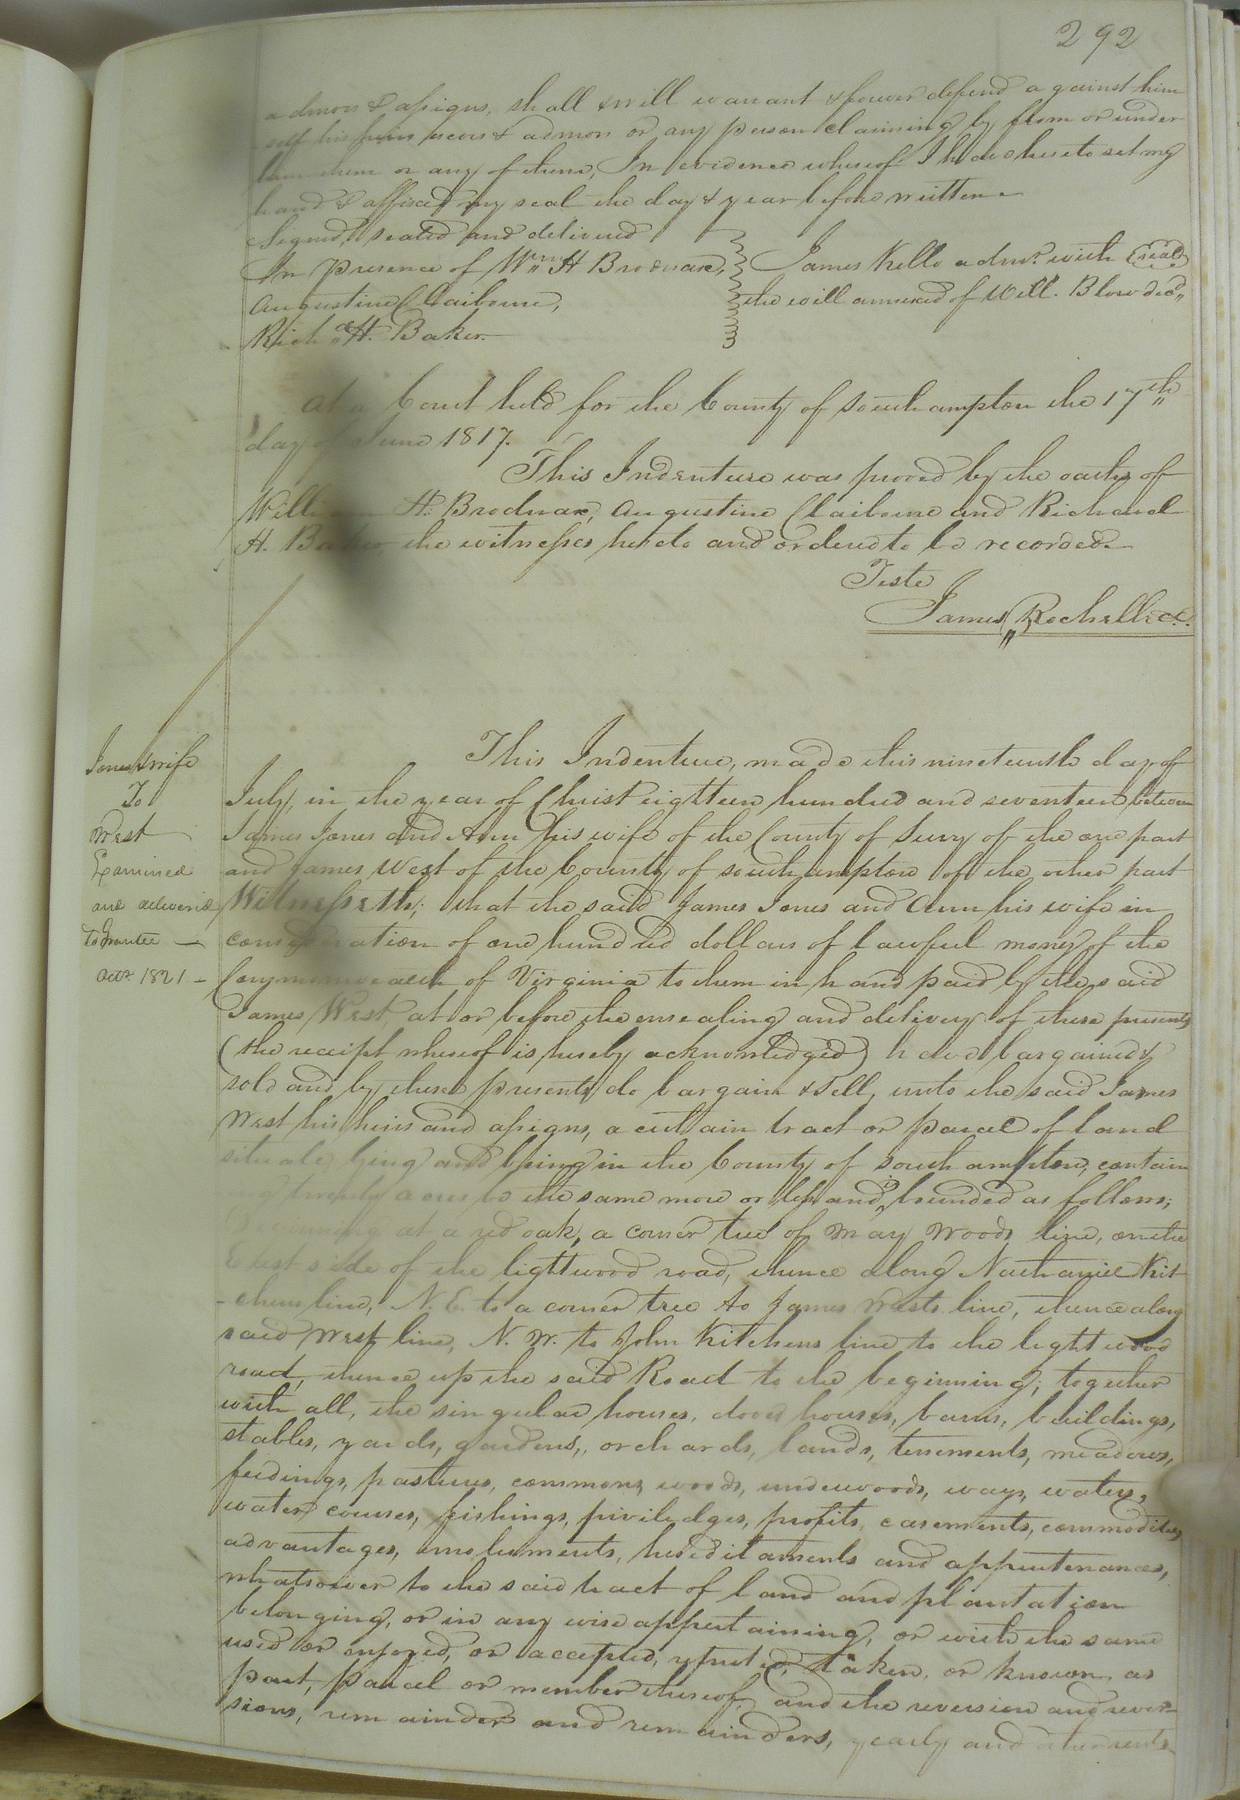 292
admors & assigns, shall & will warant & forever defend against him
self his heirs execrs & admors or any person claiming by from or under
him them or any of them, In evidence whereof I have hereto set my
hand & affixed my seal the day & year before written
Signed, sealed and delivered
In presence of Wm. H Brodnax,
Augustine Claiborne,
Richd. H. Baker
James Kello admr. with (seal)
the will annexed of Will. Blow decd.
At a Court held for the County of Southampton the 17th
day of June 1817.
This Indenture was proved by the oaths of
William H. Brodnax, Augustine Claiborne and Richard
H. Baker the witnesses hereto and ordered to be recorded
Teste
James Rochelle cc.
Jones & wife
To
West
Examined
and delivered
To Grantee
Octr. 1821
This Indenture, made this nineteenth day of
July, in the year of Christ eighteen hundred and seventeen between
James Jones and Ann his wife of the County of Surry of the one part
and James West of the County of Southampton of the other part
Witnesseth; that the said James Jones and Ann his wife in
consideration of one hundred dollars of lawful money of the
Commonwealth of Virginia to them in hand paid by the said
James West, at or before the ensealing and delivery of these presents
(the receipt whereof is hereby acknowledged) have bargained &
sold and by these presents do bargain & sell, unto the said James
West his heirs and assigns, a certain tract or parcel of land
situate, lying and being in the County of Southampton, contain
ing twenty acres be the same more or less and bounded as follows;
Beginning at a red oak, a corner tree of May Woods line, on the
East side of the lightwood road, thence along Nathaniel Kit
-chens line, N. E. to a corner tree to James Wests line, thence along
said West line, N. W. to John Kitchens line to the lightwood
road, thence up the said Road to the beginning; together
with all, the singular houses, dove houses, barns, buildings,
stables, yards, gardens, orchards, lands, tenements, meadows,
feedings, pastures, commons, woods, underwoods, ways, waters,
water courses, fishings, priviledges, profits, easements, commodities,
advantages, emoluments, hereditaments and appurtenances,
whatsoever to the said tract of land and plantation
belonging, or in any wise appertaining, or with the same
used or enjoyed, or accepted, reputed, taken, or known, as
part, parcel or member thereof, and the reversion and rever-
sions, remainder and remainders, yearly and other rents